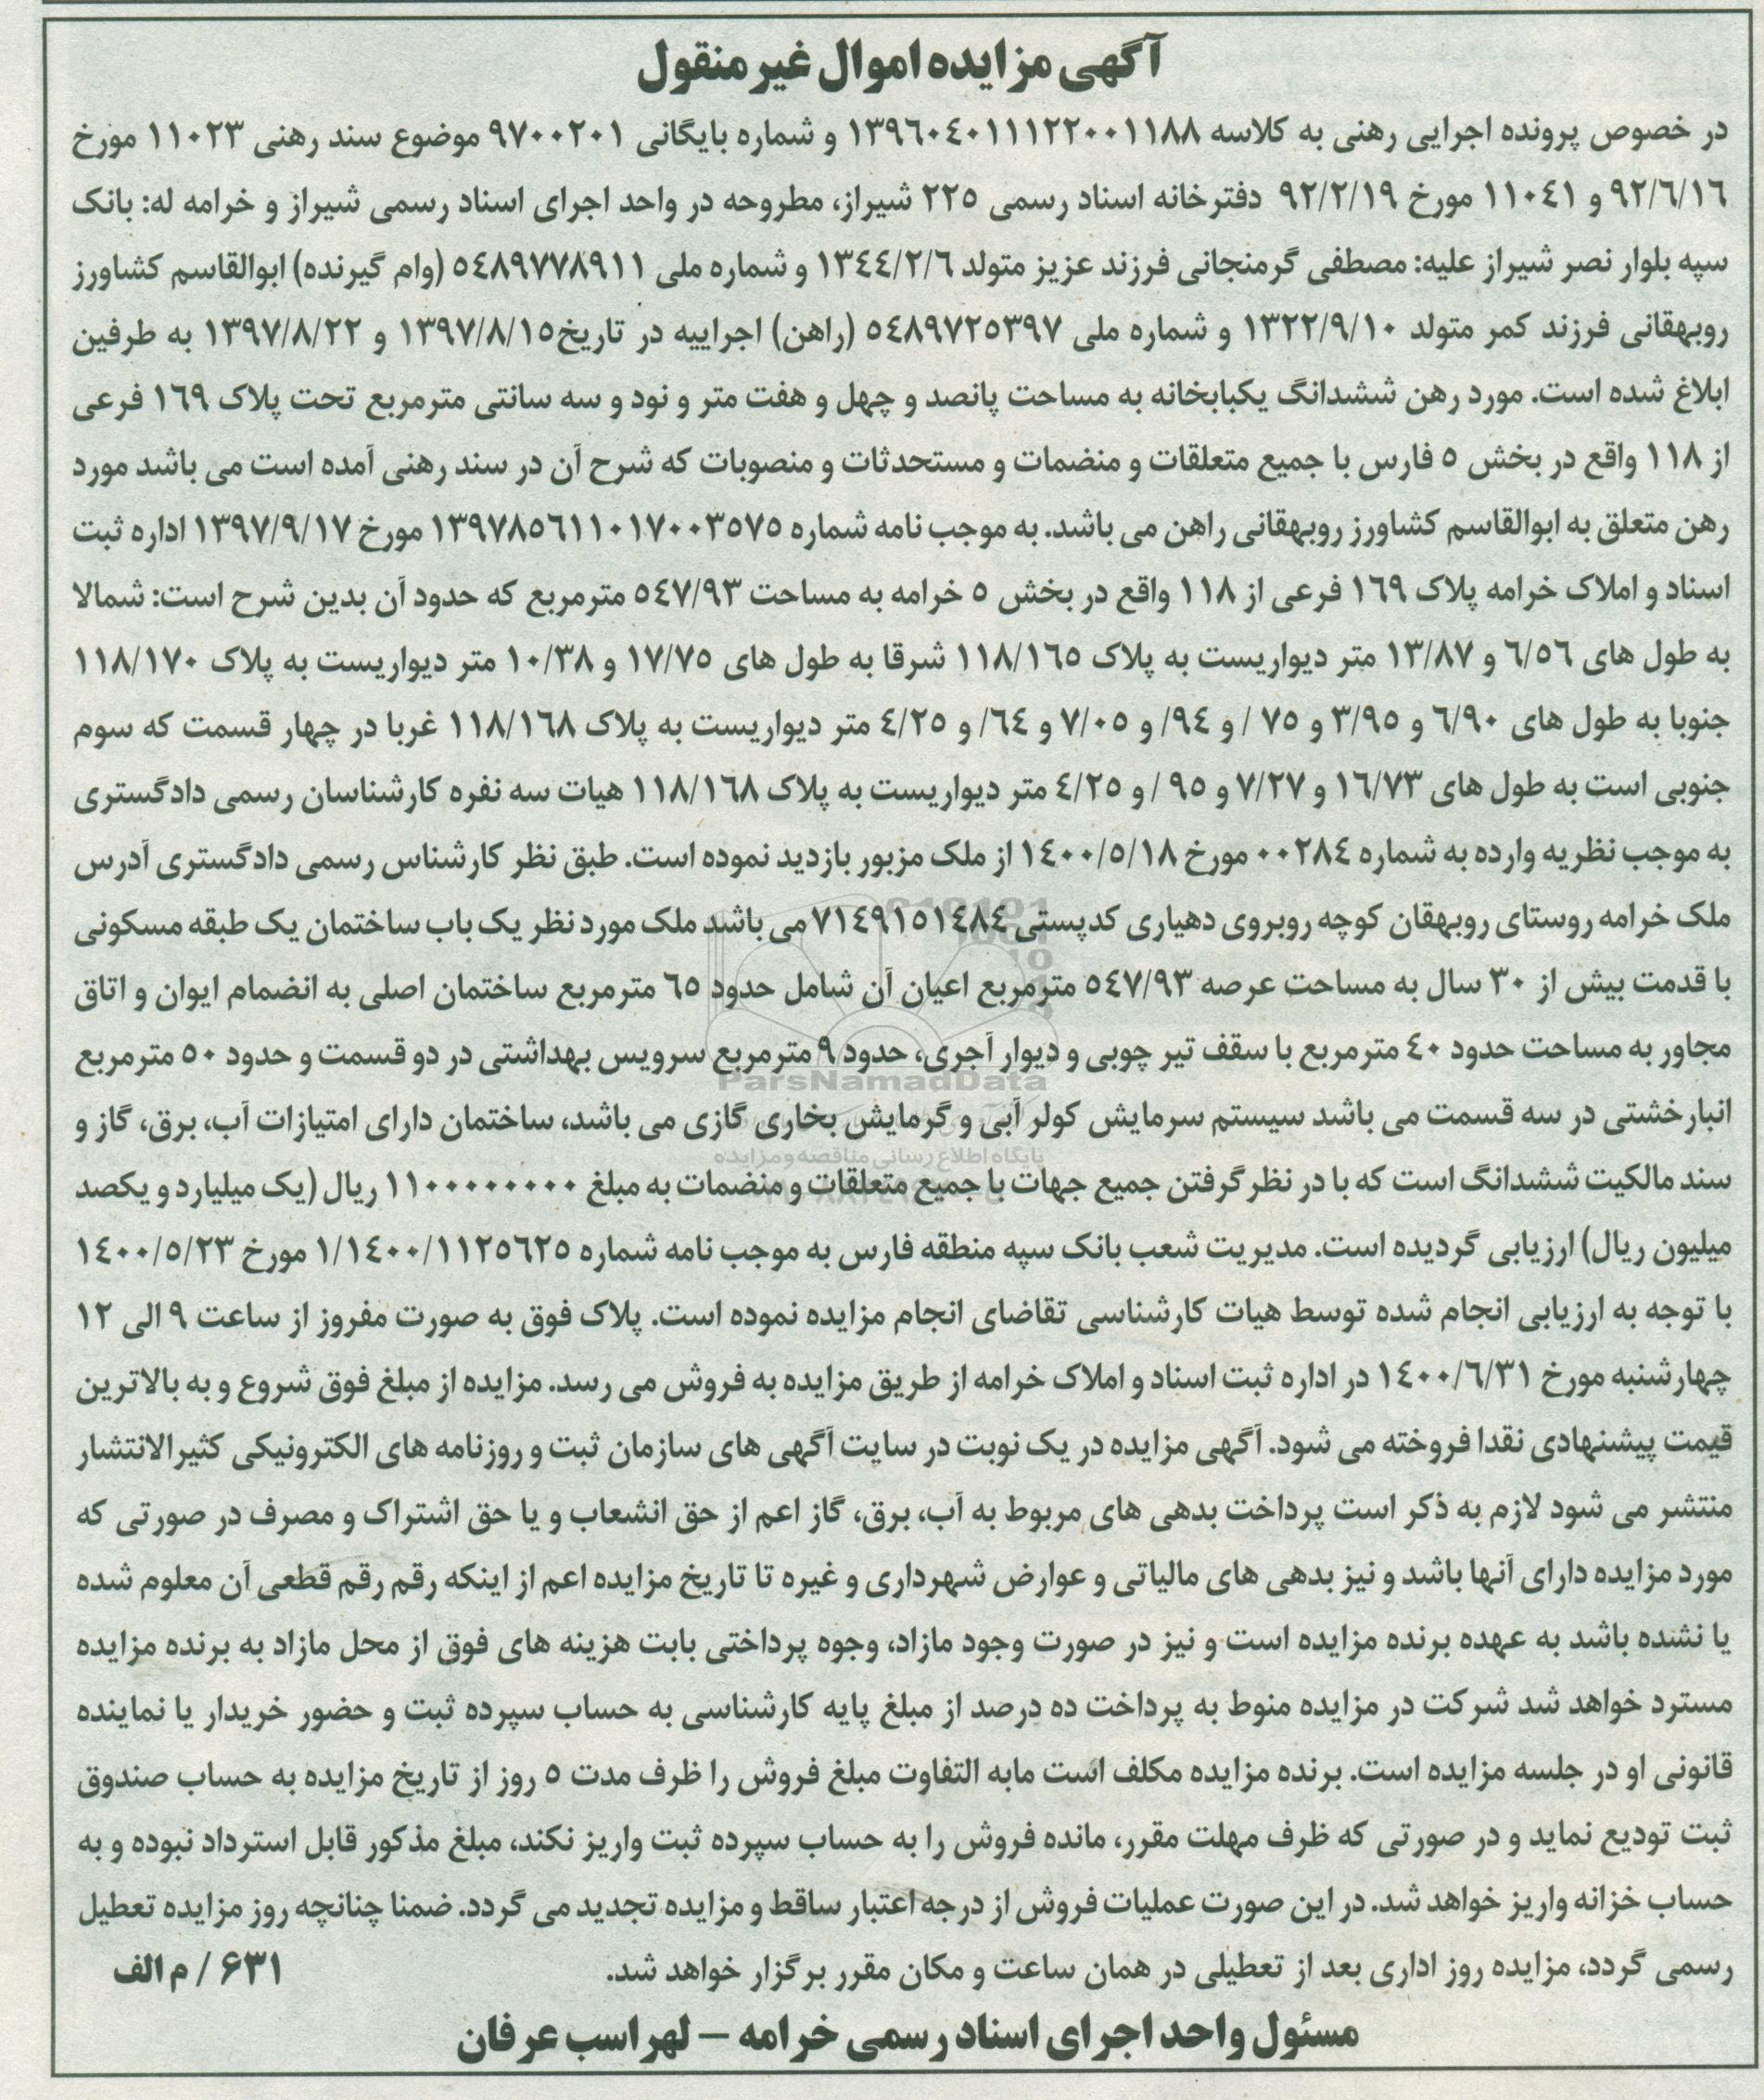 آگهی مزایده اموال غیر منقول
در خصوص پرونده اجرایی رهنی به کلاسه ۱۳۹۶۰۴۰۱۱۱۲۲۰۰۱۱۸۸ و شماره بایگانی ۹۷۰۰۲۰۱ موضوع سند رهنی ۱۱۰۲۳ مورخ
۹۲/۶/۱۶ و ۱۱۰۴۱ مورخ ۹۲/۲/۱۹ دفترخانه اسناد رسمی ۲۲۵ شیراز، مطروحه در واحد اجرای اسناد رسمی شیراز و خرامه له: بانک
سپه بلوار نصر شیراز علیه: مصطفی گرمنجانی فرزند عزیز متولد ۱۳۴۴/۲/۶ و شماره ملی ۵۴۸۹۷۷۸۹۱۱ (وام گیرنده) ابوالقاسم کشاورز
روبهقانی فرزند کمر متولد ۱۳۲۲/۹/۱۰ و شماره ملی ۵۴۸۹۷۲۵۳۹۷ (راهن) اجراییه در تاریخ۱۳۹۷/۸/۱۵ و ۱۳۹۷/۸/۲۲ به طرفین
ابلاغ شده است. مورد رهن ششدانگ یکبابخانه به مساحت پانصد و چهل و هفت متر و نود و سه سانتی مترمربع تحت پلاک ۱۶۹ فرعی
از ۱۱۸ واقع در بخش ۵ فارس با جمیع متعلقات و منضمات و مستحدثات و منصوبات که شرح آن در سند رهنی آمده است می باشد مورد
رهن متعلق به ابوالقاسم کشاورز روبهقانی راهن می باشد. به موجب نامه شماره ۱۳۹۷۸۵۶۱۱۰۱۷۰۰۳۵۷۵ مورخ ۱۳۹۷/۹/۱۷ اداره ثبت
اسناد و املاک خرامه پلاک ۱۶۹ فرعی از ۱۱۸ واقع در بخش ۵ خرامه به مساحت ۵۴۷/۹۳ مترمربع که حدود آن بدین شرح است: شمالا
به طول های ۶/۵۶ و ۱۳/۸۷ متر دیواریست به پلاک ۱۱۸/۱۶۵ شرقا به طول های ۱۷/۷۵ و ۱۰/۳۸ متر دیواریست به پلاک ۱۱۸/۱۷۰
جنوبا به طول های ۶/۹۰ و ۳/۹۵ و ۷۵ / و ۹۴/ و ۷/۰۵ و ۶۴/ و ۴/۲۵ متر دیواریست به پلاک ۱۱۸/۱۶۸ غربا در چهار قسمت که سوم
جنوبی است به طول های ۱۶/۷۳ و ۷/۲۷ و ۹۵ / و ۴/۲۵ متر دیواریست به پلاک ۱۱۸/۱۶۸ هیات سه نفره کارشناسان رسمی دادگستری
به موجب نظریه وارده به شماره ۰۰۲۸۴ مورخ ۱۴۰۰/۵/۱۸ از ملک مزبور بازدید نموده است. طبق نظر کارشناس رسمی دادگستری آدرس
ملک خرامه روستای روبهقان کوچه روبروی دهیاری کدپستی ۷۱۴۹۱۵۱۴۸۴ می باشد ملک مورد نظر یک باب ساختمان یک طبقه مسکونی
با قدمت بیش از ۳۰ سال به مساحت عرصه ۵۴۷/۹۳ مترمربع اعیان آن شامل حدود ۶۵ مترمربع ساختمان اصلی به انضمام ایوان و اتاق
مجاور به مساحت حدود ۴۰ مترمربع با سقف تیر چوبی و دیوار آجری، حدود ۹ مترمربع سرویس بهداشتی در دو قسمت و حدود ۵۰ مترمربع
ParsNamadData
انبارخشتی در سه قسمت می باشد سیستم سرمایش کولر آبی و گرمایش بخاری گازی می باشد، ساختمان دارای امتیازات آب، برق، گاز و
پایگاه اطلاع رسانی مناقصه و مزایده
سند مالکیت ششدانگ است که با در نظر گرفتن جمیع جهات با جمیع متعلقات و منضمات به مبلغ ۱۱۰۰۰۰۰۰۰۰۰ ریال (یک میلیارد و یکصد
میلیون ریال) ارزیابی گردیده است. مدیریت شعب بانک سپه منطقه فارس به موجب نامه شماره ۱/۱۴۰۰/۱۱۲۵۶۲۵ مورخ ۱۴۰۰/۵/۲۳
با توجه به ارزیابی انجام شده توسط هیات کارشناسی تقاضای انجام مزایده نموده است. پلاک فوق به صورت مفروز از ساعت ۹ الی ۱۲
چهارشنبه مورخ ۱۴۰۰/۶/۳۱ در اداره ثبت اسناد و املاک خرامه از طریق مزایده به فروش می رسد. مزایده از مبلغ فوق شروع و به بالاترین
قیمت پیشنهادی نقدا فروخته می شود. آگهی مزایده در یک نوبت در سایت آگهی های سازمان ثبت و روزنامه های الکترونیکی کثیرالانتشار
منتشر می شود لازم به ذکر است پرداخت بدهی های مربوط به آب، برق، گاز اعم از حق انشعاب و یا حق اشتراک و مصرف در صورتی که
مورد مزایده دارای آنها باشد و نیز بدهی های مالیاتی و عوارض شهرداری و غیره تا تاریخ مزایده اعم از اینکه رقم رقم قطعی آن معلوم شده
یا نشده باشد به عهده برنده مزایده است و نیز در صورت وجود مازاد، وجوه پرداختی بابت هزینه های فوق از محل مازاد به برنده مزایده
مسترد خواهد شد شرکت در مزایده منوط به پرداخت ده درصد از مبلغ پایه کارشناسی به حساب سپرده ثبت و حضور خریدار یا نماینده
قانونی او در جلسه مزایده است. برنده مزایده مکلف است مابه التفاوت مبلغ فروش را ظرف مدت ۵ روز از تاریخ مزایده به حساب صندوق
ثبت تودیع نماید و در صورتی که ظرف مهلت مقرر، مانده فروش را به حساب سپرده ثبت واریز نکند، مبلغ مذکور قابل استرداد نبوده و به
حساب خزانه واریز خواهد شد. در این صورت عملیات فروش از درجه اعتبار ساقط و مزایده تجدید می گردد. ضمنا چنانچه روز مزایده تعطیل
رسمی گردد، مزایده روز اداری بعد از تعطیلی در همان ساعت و مکان مقرر برگزار خواهد شد. ۶۳۱ / م الف
مسئول واحد اجرای اسناد رسمی خرامه – لهراسب عرفان